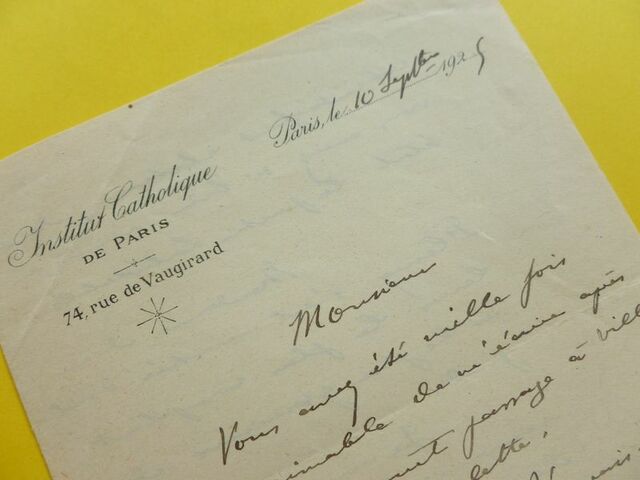 Institut Catholique
DE PARIS
74, rue de Vaugirard
Paris, le 10 Septbre 1925
Monsieur
Vous avez été mille fois
aimable de m'écrire après
passage à Vill